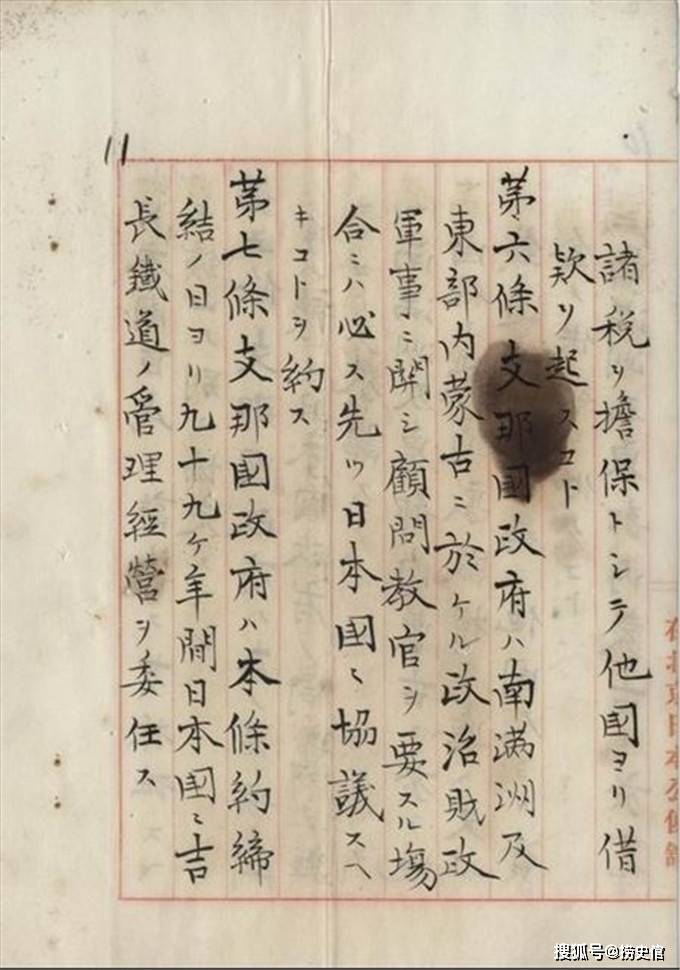 諸税ヲ擔保トシテ他國ヨリ借
款ヲ起スコト
第六條 支那國政府ハ南滿洲及
東部内蒙古ニ於ケル政治財政
軍事ニ関シ顧問教官ヲ要スル場
合ニハ必ス先ツ日本國ニ協議スヘ
キコトヲ約ス
第七條 支那國政府ハ本條約締
結ノ日ヨリ九十九ケ年間日本國ニ吉
長鐵道ノ管理經營ヲ委任ス
11
在北京日本公使館
搜狐号@捞史馆